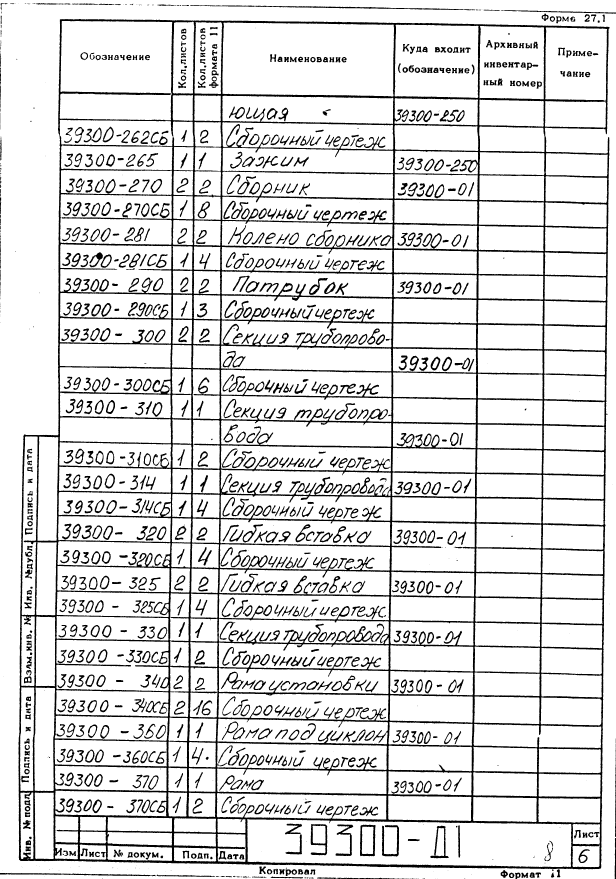 Форма 27.1
Обозначение Кол.листов Кол.листов формата 11 Наименование Куда входит (обозначение) Архивный инвентар-ный номер Приме-чание
ющая 39300-250
39300-262СБ 1 2 Сборочный чертеж
39300-265 1 1 Зажим 39300-250
39300-270 2 2 Сборник 39300-01
39300-270СБ 1 8 Сборочный чертеж
39300-281 2 2 Колено сборника 39300-01
39300-281СБ 1 4 Сборочный чертеж
39300-290 2 2 Патрубок 39300-01
39300-290СБ 1 3 Сборочный чертеж
39300-300 2 2 Секция трубопрово-
да 39300-01
39300-300СБ 1 6 Сборочный чертеж
39300-310 1 1 Секция трубопро-
вода 39300-01
39300-310СБ 1 2 Сборочный чертеж
39300-314 1 1 Секция трубопровода 39300-01
39300-314СБ 1 4 Сборочный чертеж
39300-320 2 2 Гибкая вставка 39300-01
39300-320СБ 1 4 Сборочный чертеж
39300-325 2 2 Гибкая вставка 39300-01
39300-325СБ 1 4 Сборочный чертеж
39300-330 1 1 Секция трубопровода 39300-01
39300-330СБ 1 2 Сборочный чертеж
39300-340 2 2 Рама установки 39300-01
39300-340СБ 2 16 Сборочный чертеж
39300-360 1 1 Рама под циклон 39300-01
39300-360СБ 1 4 Сборочный чертеж
39300-370 1 1 Рама 39300-01
39300-370СБ 1 2 Сборочный чертеж
Подпись и дата
Инв. №дубл.
Взам.инв. №
Подпись и дата
Инв. № подл.
Изм Лист № докум. Подп. Дата
39300-Д1
8
Лист
6
Копировал
Формат 11